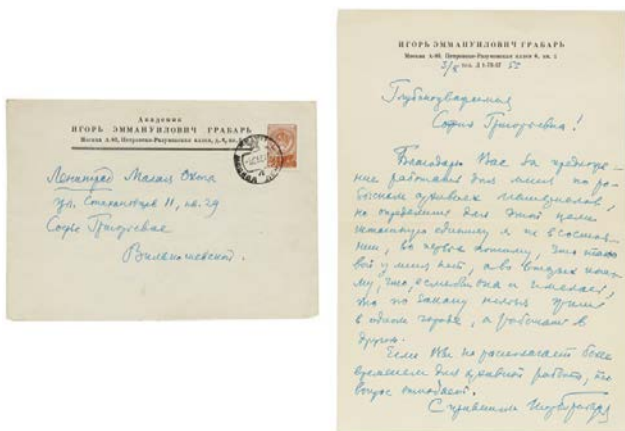 Академик
ИГОРЬ ЭММАНУИЛОВИЧ ГРАБАРЬ
Москва А-80, Петровско-Разумовская аллея, д.
Ленинград Малая Охта
ул. Стахановцев 11, кв. 29
Софье Григорьевне
ИГОРЬ ЭММАНУИЛОВИЧ ГРАБАРЬ
Москва А-80, Петровско-Разумовская аллея 6, кв. 1
тел. Д 1-70-47
Глубокоуважаемая
София Григорьевна!
Благодарю Вас за предложе-
ние работать для меня по ро-
зыскам архивных материалов,
но определить для этой цели
штатную единицу я не в состоя-
нии, во первых потому, что тако-
вой у меня нет, а во вторых пото-
му, что, если бы она и имелась,
то по закону нельзя жить
в одном городе, а работать в
другом.
Если Вы не располагаете более
временем для архивной работы, то
вопрос отпадает.
С приветом Игорь Грабарь